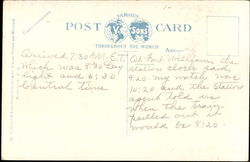 FAMOUS
POST CARD
V.O. & SONS
THROUGHOUT THE WORLD
Arrived 7:30 A.M. E.T.
Which was 8:30 Day
light and 6:30
Central time
At Fort William the
station clock said
9:20. my watch was
10:20 and the station
agent told us
when the train
pulled out it
would be 8:20.